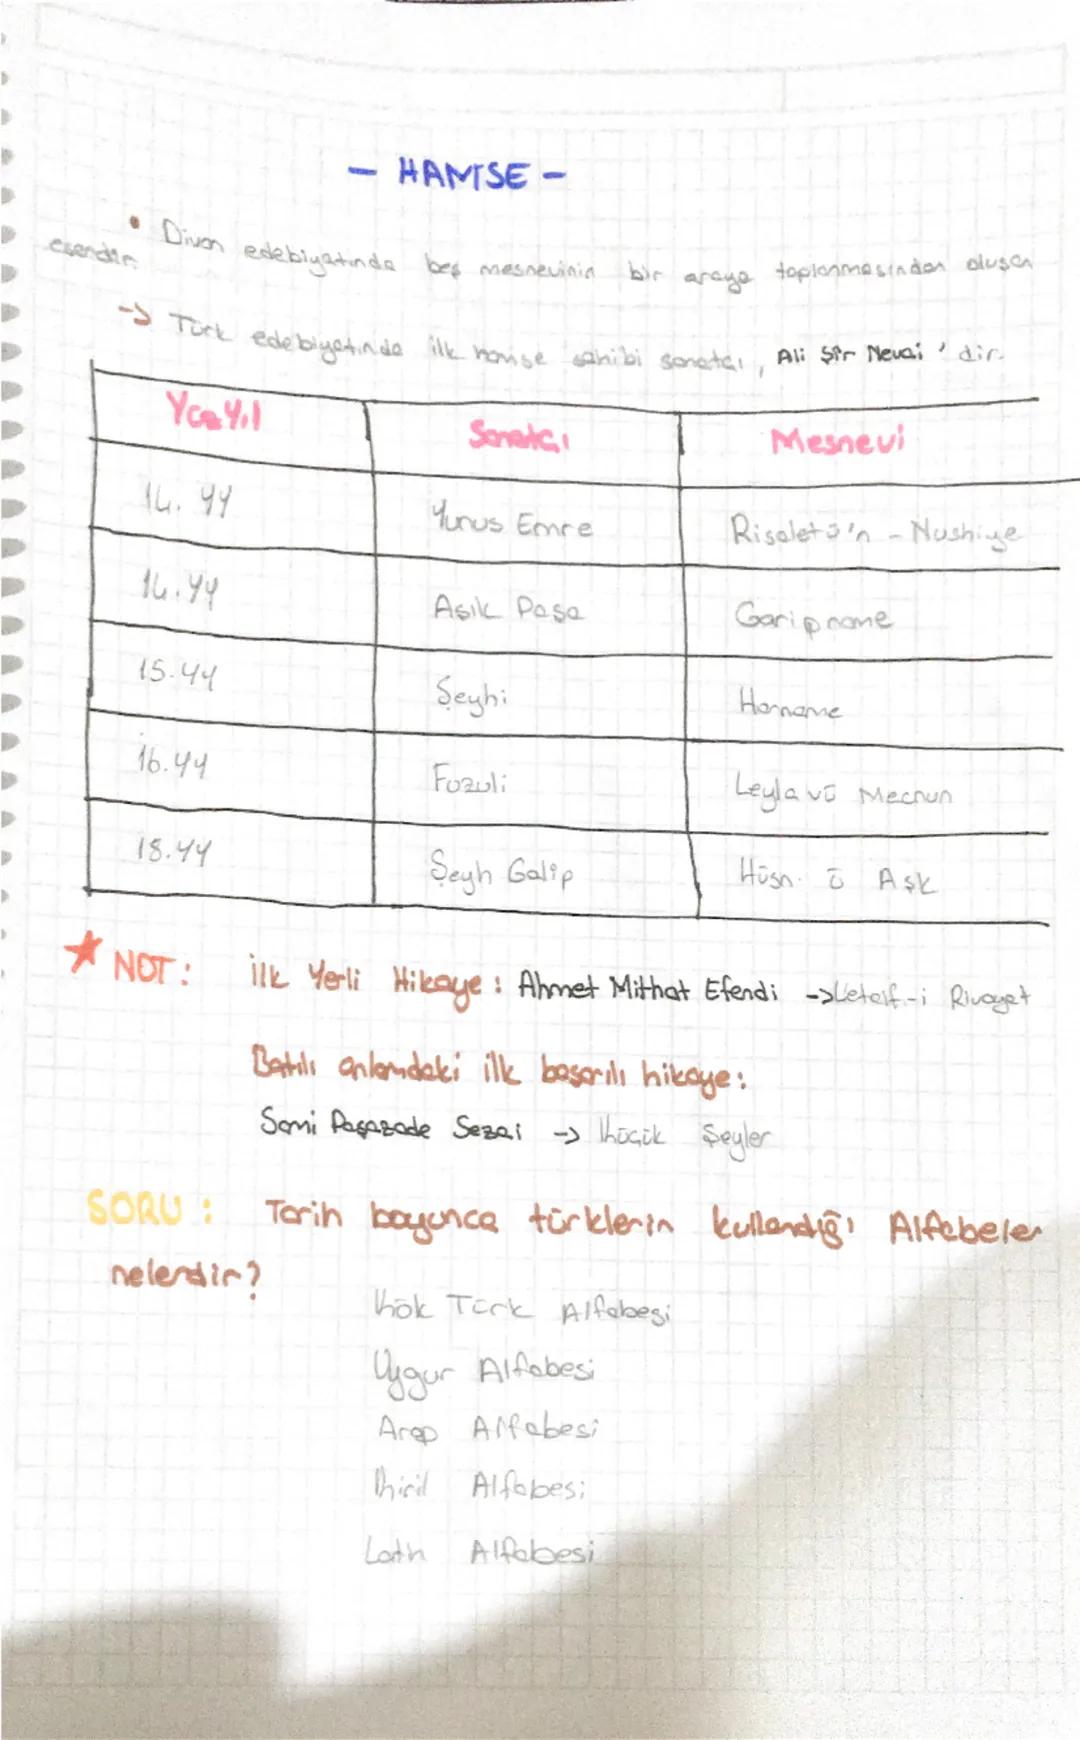 - HAMSE -
• Divan edebiyatında beş mesnevinin bir araya toplanmasından oluşan
eserdir.
-> Türk edebiyatında ilk hamse sahibi sanatçı, Ali Şir Nevai' dir.
Yüzyıl Sanatçı Mesnevi
14. yy Yunus Emre Risaletü'n - Nushiye
14.yy Aşık Paşa Garipname
15.yy Şeyhi Harname
16.yy Fuzuli Leyla vü Mecnun
18.yy Şeyh Galip Hüsn. ü Aşk
★ NOT: İlk Yerli Hikaye: Ahmet Mithat Efendi -> Letaif-i Rivayet
Batılı anlamdaki ilk başarılı hikaye:
Sami Paşazade Sezai -> Küçük Şeyler
SORU: Tarih boyunca türklerin kullandığı Alfabeler
nelerdir?
Kök Türk Alfabesi
Uygur Alfabesi
Arap Alfabesi
Kiril Alfabesi
Latin Alfabesi